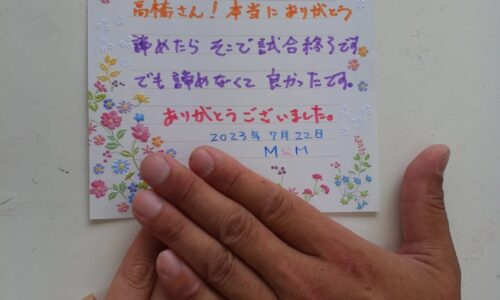 高橋さん！本当にありがとう
諦めたら そこで試合終了です
でも 諦めなくて 良かったです。
ありがとうございました。
2023年 7月22日
M&M